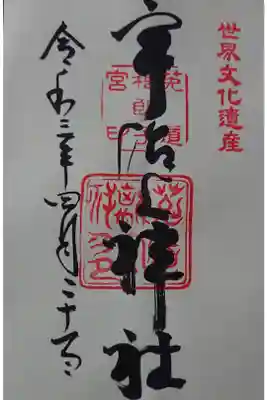 世界文化遺産
宇治上神社
令和三年四月二十日